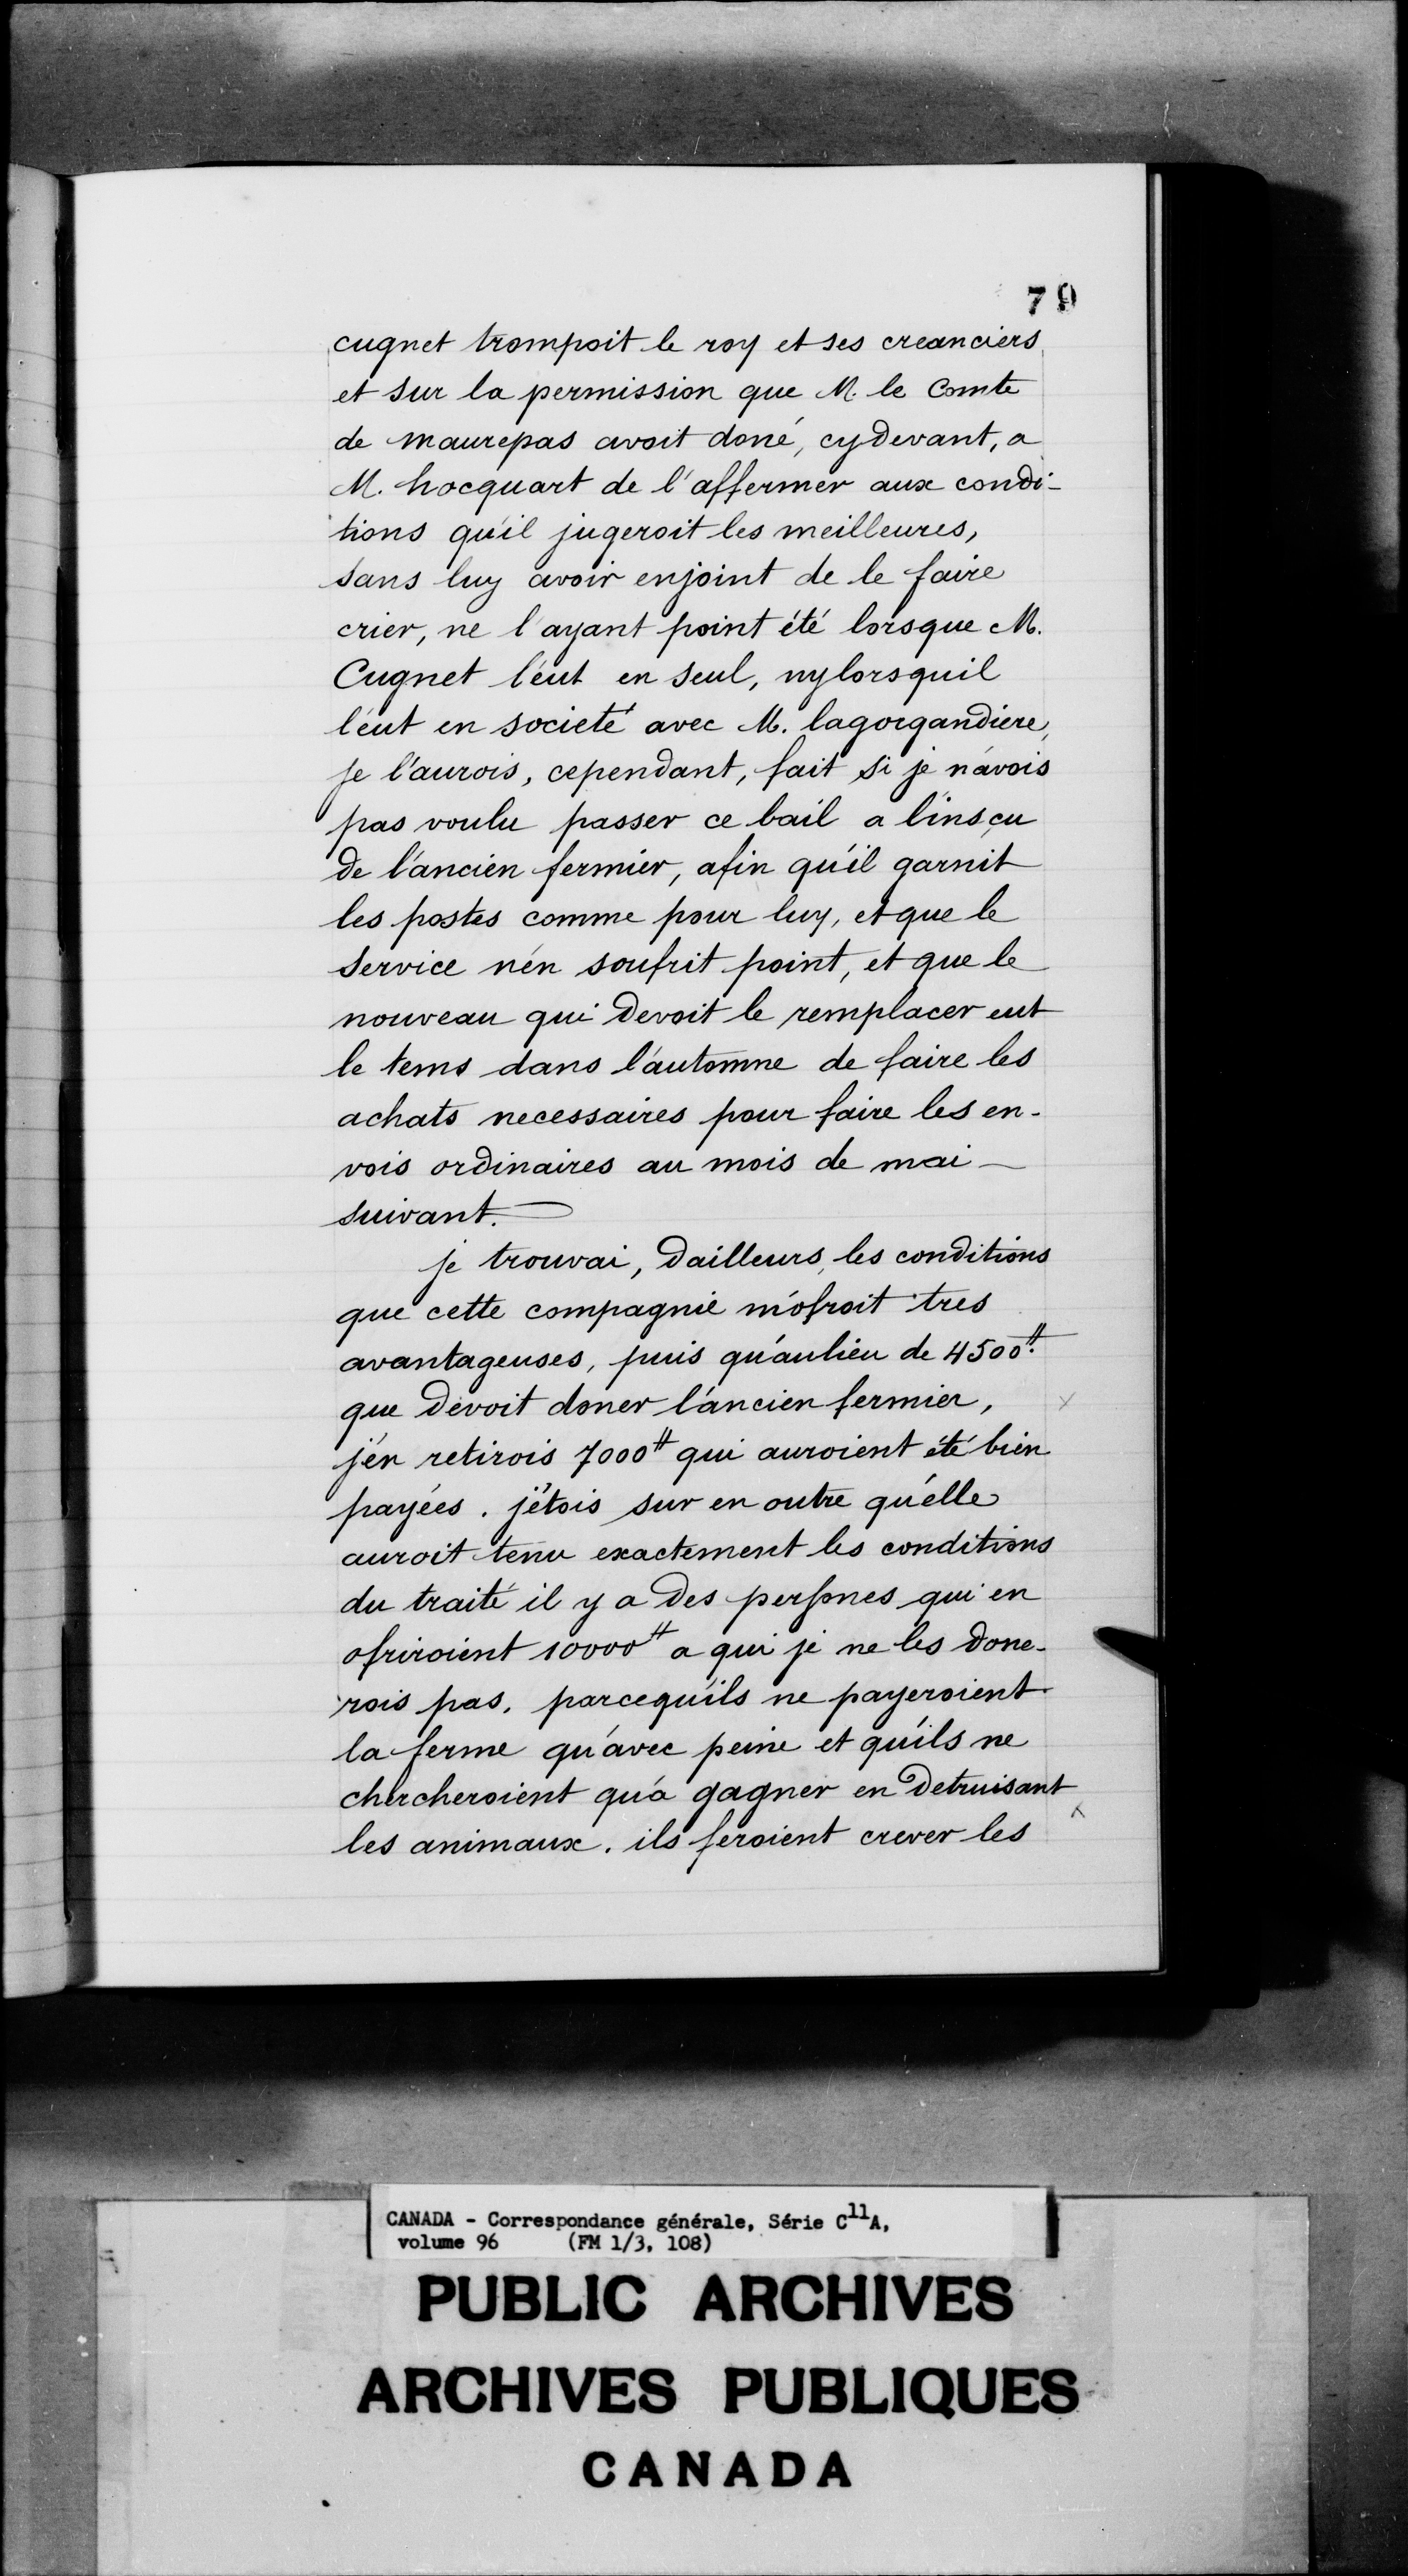 79
cugnet trompoit le roy et ses creanciers
et sur la permission que M. le Comte
de maurepas avoit doné, cydevant, a
M. hocquart de l'affermer aux condi-
tions qu'il jugeroit les meilleures,
sans luy avoir enjoint de le faire
crier, ne l'ayant point été lorsque M.
Cugnet l'eut en seul, ny lorsquil
l'eut en societé avec M. lagorgandiere,
je l'aurois, cependant, fait si je n'avois
pas voulu passer ce bail a l'insçu
de l'ancien fermier, afin qu'il garnit
les postes comme pour luy, et que le
service n'en soufrit point, et que le
nouveau qui devoit le remplacer eut
le tems dans l'automne de faire les
achats necessaires pour faire les en-
vois ordinaires au mois de mai
suivant.
je trouvai, dailleurs, les conditions
que cette compagnie m'ofroit tres
avantageuses, puis qu'aulieu de 4500#
que devoit doner l'ancien fermier, x
j'en retirois 7000# qui auroient été bien
payées. j'étois sur en outre qu'elle
auroit tenu exactement les conditions
du traité il y a des persones qui en
ofriroient 10000# a qui je ne les done-
rois pas, parcequ'ils ne payeroient
la ferme qu'avec peine et qu'ils ne
chercheroient qu'a gagner en detruisant
les animaux. ils feroient crever les x
CANADA - Correspondance générale, Série C11A,
volume 96 (FM 1/3, 108)
PUBLIC ARCHIVES
ARCHIVES PUBLIQUES
CANADA